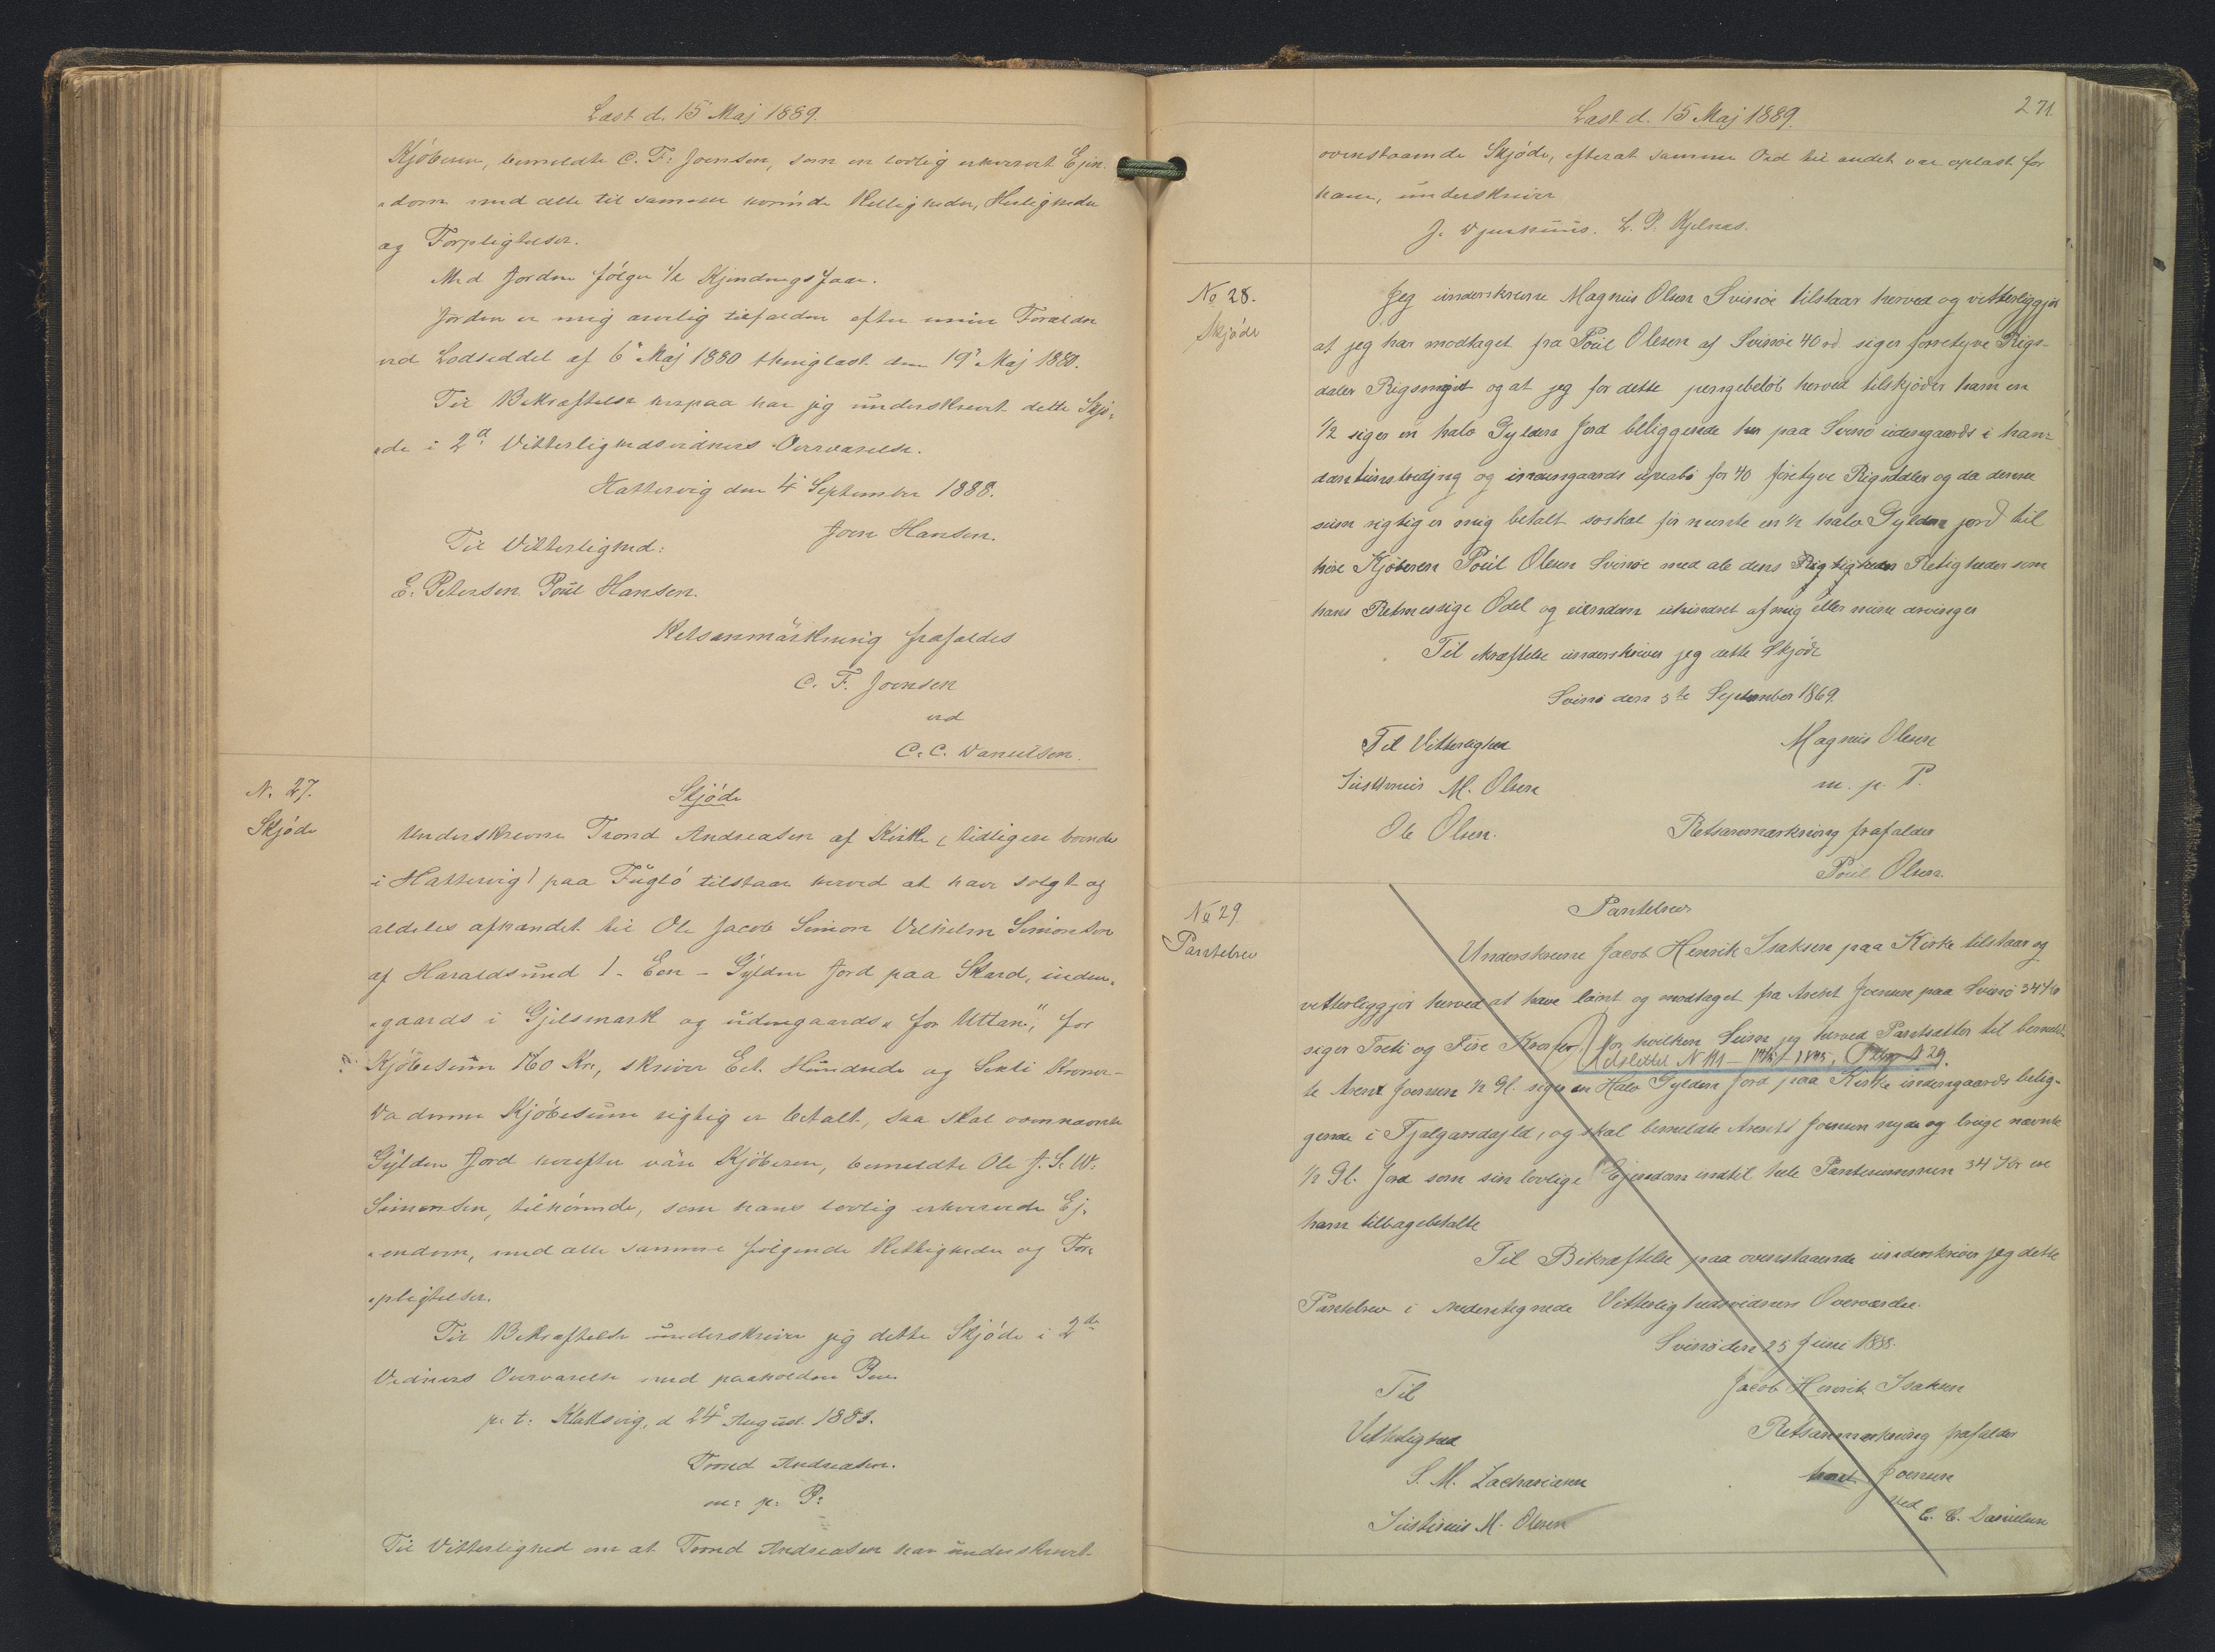 Læst d. 15 Maj 1889.
Kjöberen, bemeldte C. F. Joensen, som en lovlig erhvervet Ejen-
"dom med alle til samme hörende Rettigheder, Herligheder
og Forpligtelser.
Med Jorden følger 1/2 Kjendingsfaar.
Jorden er mig arvelig tilfalden efter mine Forældre
ved Lodseddel af 6" Maj 1880 thinglæst den 19" Maj 1880.
Til Bekræftelse herpaa har jeg underskrevet dette Skjö-
"de i 2de Vitterlighedsvidners Overværelse.
Hattervig den 4 September 1888.
Joen Hansen.
Til Vitterlighed:
E. Petersen. Poul Hansen.
Retsanmärkning frafaldes
C. F. Joensen
ved
C. C. Danielsen.
N. 27.
Skjöde
Skjöde
Underskrevne Trond Andreasen af Kirke (tidligere boende
i Hattervig) paa Fuglö tilstaar herved at have solgt og
aldeles afhændet til Ole Jacob Simon Vilhelm Simonsen
af Haraldsund 1 - Een - Gylden Jord paa Skard, inden-
"gaards i Gjilsmark og udengaards "for Uttan", for
Kjöbesum 160 Kr., skriver Et Hundrede og Seksti Kroner -
Da denne Kjöbesum rigtig er betalt, saa skal ovennævnte
Gylden Jord herefter väre Kjöberen, bemeldte Ole J. S. W.
Simonsen, tilhörende, som hans lovlig erhvervede Ej-
"endom, med alle samme fölgende Rettigheder og For-
"pligtelser.
Til Bekræftelse underskriver jeg dette Skjöde i 2de
Vidners Overværelse med paaholden Pen
p. t. Klaksvig, d 24" August 1883.
Trond Andreasen.
m: p: P:
Til Vitterlighed om at Trond Andreasen har underskrevet
271
Læst d. 15 Maj 1889.
ovenstaaende Skjöde, efterat samme Ord til andet var oplæst for
ham, underskriver
J. Djurhuus. L. P. Kjelnæs.
No 28.
Skjöde
Jeg underskrevne Magnus Olsen Svinöe tilstaar herved og vitterliggjör
at jeg har modtaget fra Poul Olesen af Svinöe 40 rd siger förretyve Rigs-
daler Rigsmynt og at jeg for dette pengebelöb herved tilskjöder ham en
1/2 siger en halv Gylden Jord beliggende her paa Svinö udengaards i han-
og innengaards for 40 firetyve Rigsdaler og da denne
sum rigtig er mig betalt so skal för nevnte en 1/2 halv Gylden jord til
höre Kjöberen Poul Olesen Svinöe med ale dens Retigheder som
hans Retmessige Odel og eiendom uhindret af mig eller mine arvinger
Til ekræftelse underskriver jeg dette Skjöde
Svinö den 3te September 1869
Til Vitterlighed
Magnus Olsen
Justinus M. Olsen
m. p. P.
Ole Olsen.
Retsanmærkning frafalder
Poul Olsen.
No 29.
Pantebrev
Pantebrev
Underskrevne Jacob Henrik Isaksen paa Kirke tilstaar og
vitterliggjör herved at have lånt og modtaget fra Arent Joensen paa Svinö 34 Kr
siger Treti og Fire Kroner for hvilken Sum jeg herved Pantsætter til bemeld-
Udslettet N 141 -
te Arent Joensen 1/2 Gl. siger en Halv Gylden Jord paa Kirke indengaards belig-
gende i Fjalgarsdajld, og skal bemeldte Arent Joensen nyde og bruge nævnte
1/2 Gl. Jord som sin lovlige Ejendom indtil hele Pantesummen 34 Kr er
ham tilbagebetalte
Til Bekræftelse paa ovenstaaende underskriver jeg dette
Pantebrev i nedentegnede Vitterlighedsvidners Overværelse.
Svinö den 25 Juni 1888.
Til
Jacob Henrik Isaksen
Vitterlighed
Retsanmærkning frafalder
S. M. Zachariasen
Arent Joensen
Justinus M. Olesen
ved C. C. Danielsen